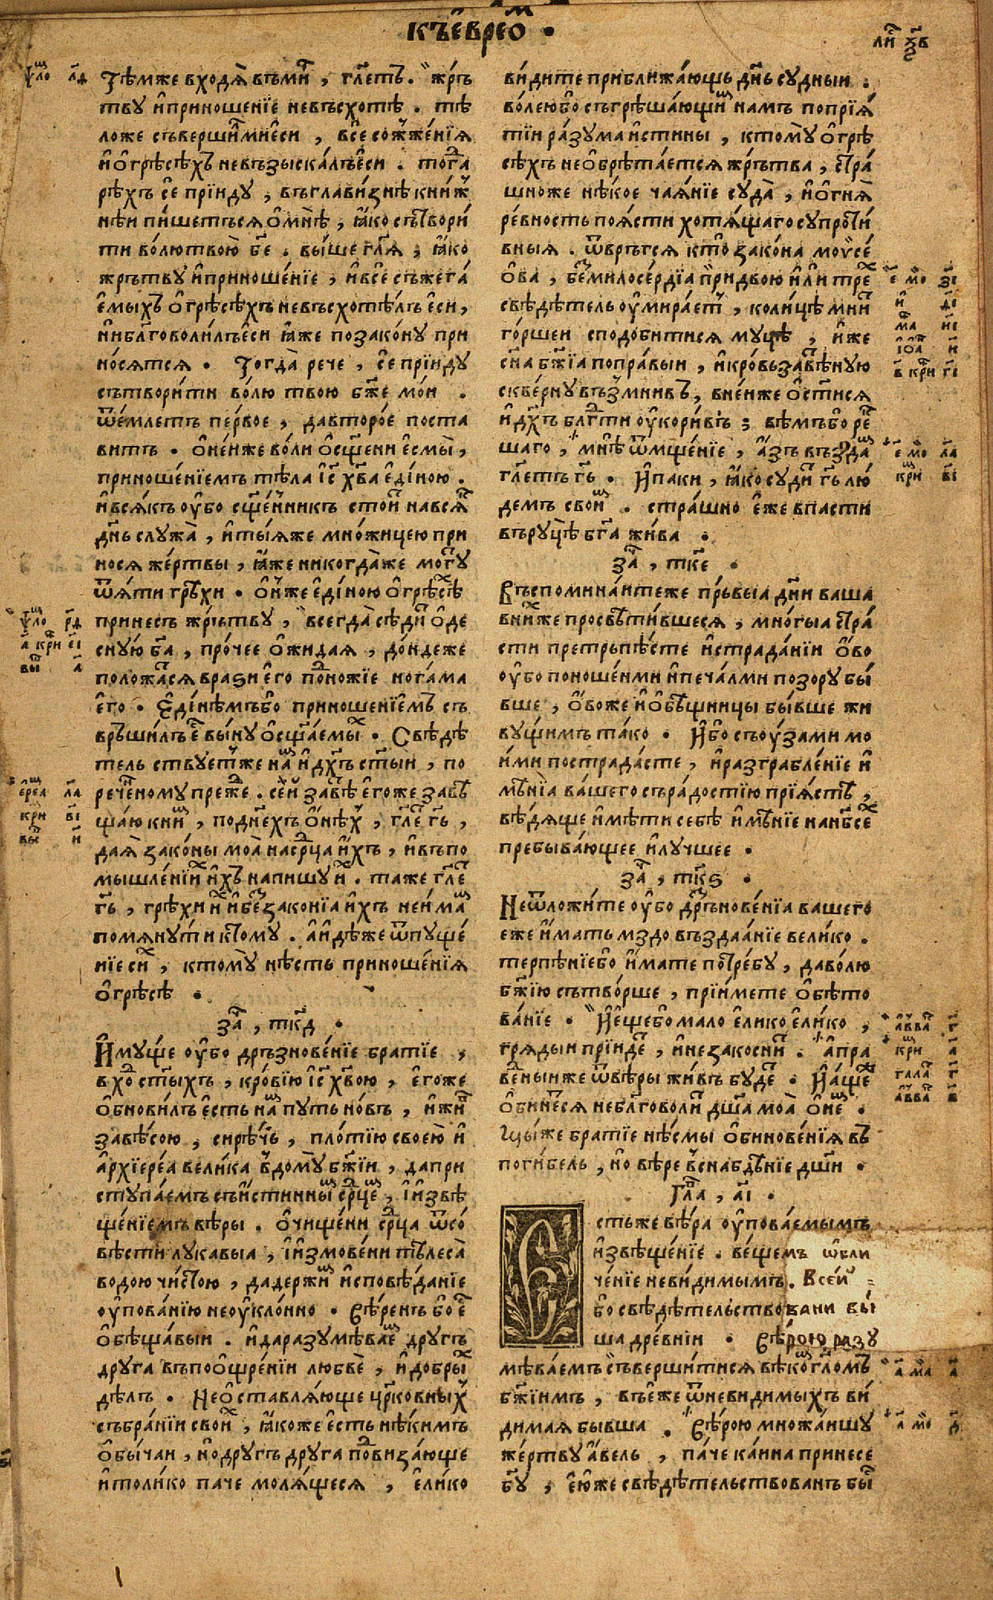 къ еврео(м) ·
ли(с) ѯв
ѱло лѳ
Тѣмже входѧ въми(р), гл҃етъ. жръ
тву иприношенїе невъсхотѣ. тѣ
ложе съвершилмиеси, все сожженїѧ
иогрѣсѣхъ невъзыскалъеси. тогда
рѣхъ се прїиду, въглавизнѣ книж
нѣи пишетьсѧ ѡмнѣ, ꙗко сътвори
ти волютвою бж҃е. выше гл҃ѧ, ꙗко
жрътву иприношенїе, ивсесъжега
емыхъ ѡгрѣсѣхъ невъсхотѣлъ еси,
ниблаговолилъеси ꙗже позакону при
носѧтсѧ. Тогда рече, се прїиду
сътворити волю твою бж҃е мой.
ѿемлетъ первое, давторое поста
витъ. ѡнейже воли ѡсщ҃ени есмы,
приношенїемъ тѣла і҃с х҃ва единою.
ивсѧкъ оубо сщ҃енникъ стоитъ навсѧкъ
дн҃ь служа, итыѧже множицею при
носѧ жертвы, ꙗже никогдаже могу
ѿѧти грѣхи. Онже единою ѡгрѣсѣ
принесъ жрътву, всегда сѣди ѡде
сную б҃а, прочее ѡжидаѧ, дондеже
положатсѧ врази его подножїе ногама
его. Единѣмъбо приношенїемъ съ
връшилъесть выну ѡсщ҃аемы. Свѣдѣ
тельствуетъже намъ идх҃ъ ст҃ый, по
реченому преже. сей завѣтъ егоже завѣ
щаю книмъ, поднехъ ѡнѣхъ, гл҃етъ г҃ь,
даѧ законы моѧ насердца ихъ, ивъпо
мышленїи ихъ напишу ихъ. таже гл҃етъ
г҃ь, грѣхи ихъ ибеззаконїѧ ихъ неимамъ
помѧнути ктому. аидѣже ѿпуще
нїе симъ, ктому нѣсть приношенїѧ
ѡгрѣсѣ.
за(ч), тк҃д.
Имуще оубо дръзновенїе братїе,
входъ ст҃ыхъ, кровїю і҃с х҃вою, егоже
ѡбновилъ есть намъ путь новъ, иживъ
завѣсою, сирѣчь, плотїю своею и
архїереа велика вдому бж҃їи, дапри
ступаемъ съистиннымъ сердцемъ, їизвѣ
щенїемъ вѣры. ѡчищени сердца ѿсо
вѣсти лукавыа, їизмовени тѣлеса
водою чистою, дадержимъ исповѣданїе
оупованїю неоуклонно. вѣренъ бо есть
ѡбѣщавый. идаразумѣваемъ другъ
друга въпоѡщренїи любве, идобрыхъ
дѣлъ. Неѡставлѧюще церковныхъ
събранїи своихъ, ꙗкоже есть нѣкимъ
ѡбычаи, нодругъ друга подвизающе
итолико паче молѧщесѧ, елико
ѱло рѳ
а кри еі
ерем ла
кри ві
видите приближающьсѧ дн҃ь судный.
волеюбо съгрѣшающимъ намъ поприѧ
тїи разума истины, ктому ѡгрѣ
сѣхъ необрѣтаетсѧ жрътва, стра
шноже нѣкое чаѧнїе суда, иогнѧ
ревность поѧсти хотѧщаго супроти
вныѧ. ѿвръгсѧ кто закона моѵсе
ѡва, безмилосердїа придвою или трехъ
свѣдѣтель оумираетъ, колицѣ мните
горшеи сподобитисѧ муцѣ, иже
сн҃а бж҃їа поправый, икровьзавѣтную
сквернувъзмнивъ, внейже ѡст҃исѧ
идх҃ъ бл҃гти оукоривъ; вѣмъбо рек
шаго, мнѣ ѿмщенїе, азъ въздамъ
гл҃етъ г҃ь. Ипаки, ꙗко судитъ г҃ь лю
демъ своимъ. страшно еже впасти
въруцѣ бг҃а жива.
за(ч), тк҃е.
Въспоминайтеже пръвыа дн҃и ваша
внихже просвѣтившесѧ, многыа стра
сти претръпѣсте истраданїи ѡво
оубо поношенми ипечалми позору бы
вше, ѡвоже иобъщницы бывше жи
вущимъ тако. Ибо съоузами мо
ими пострадасте, иразграбленїе и
мѣнїа вашего съ радостїю прїѧсте,
вѣдѧще имѣти себѣ имѣнїе нанбсехъ
пребывающее илучшее.
за(ч), тк҃ѕ.
Неѿложите оубо дръзновенїа вашего
еже имать мздовъздаанїе велико.
терпѣнїебо имате потребу, даволю
бж҃їю сътворше, прїимете ѡбѣто
ванїе. Иещебо мало елико елико,
грѧдый прїидетъ, инезакоснитъ. апра
ведныйже ѿвѣры живъ будетъ. Иаще
ѡбинетсѧ неблаговолитъ дш҃а моа ѡнемъ.
Мыже братїе нѣсмы ѡбиновенїѧ въ
погибель, но вѣре вснабдѣнїе дш҃и.
гла(в), аі.
Естьже вѣра оуповаемымъ
извѣщенїе. вещемъ ѡбли
ченїе невидимымъ. Всеи
бо свѣдѣтельствовани бы
ша древнїи. Вѣрою разу
мѣваемъ съвершитисѧ вѣкомъ гл҃омъ
бж҃їимъ, въеже ѿневидимыхъ ви
димаѧ бывша. Вѣрою множаишу
жертву авель, паче каина принесе
б҃у, еюже свѣдѣтельствованъ бысть
е мо зі
е мо ла
кри ві
авва г
кри а
гала г
авва в
а ма а
а мо д